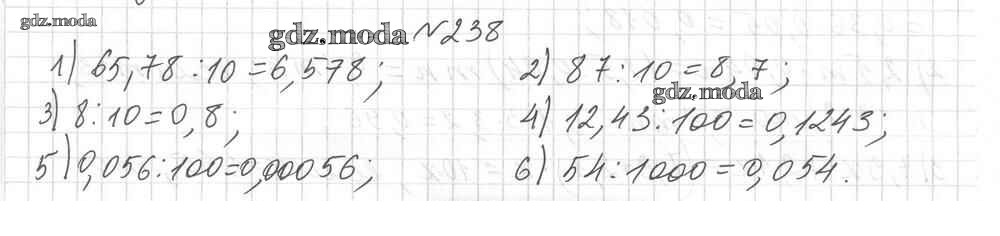 gdz.moda
gdz.moda №238
1) 65,78:10=6,578; 2) 87:10=8,7;
gdz.moda
3) 8:10=0,8; 4) 12,43:100=0,1243;
5) 0,056:100=0,00056; 6) 54:1000=0,054.